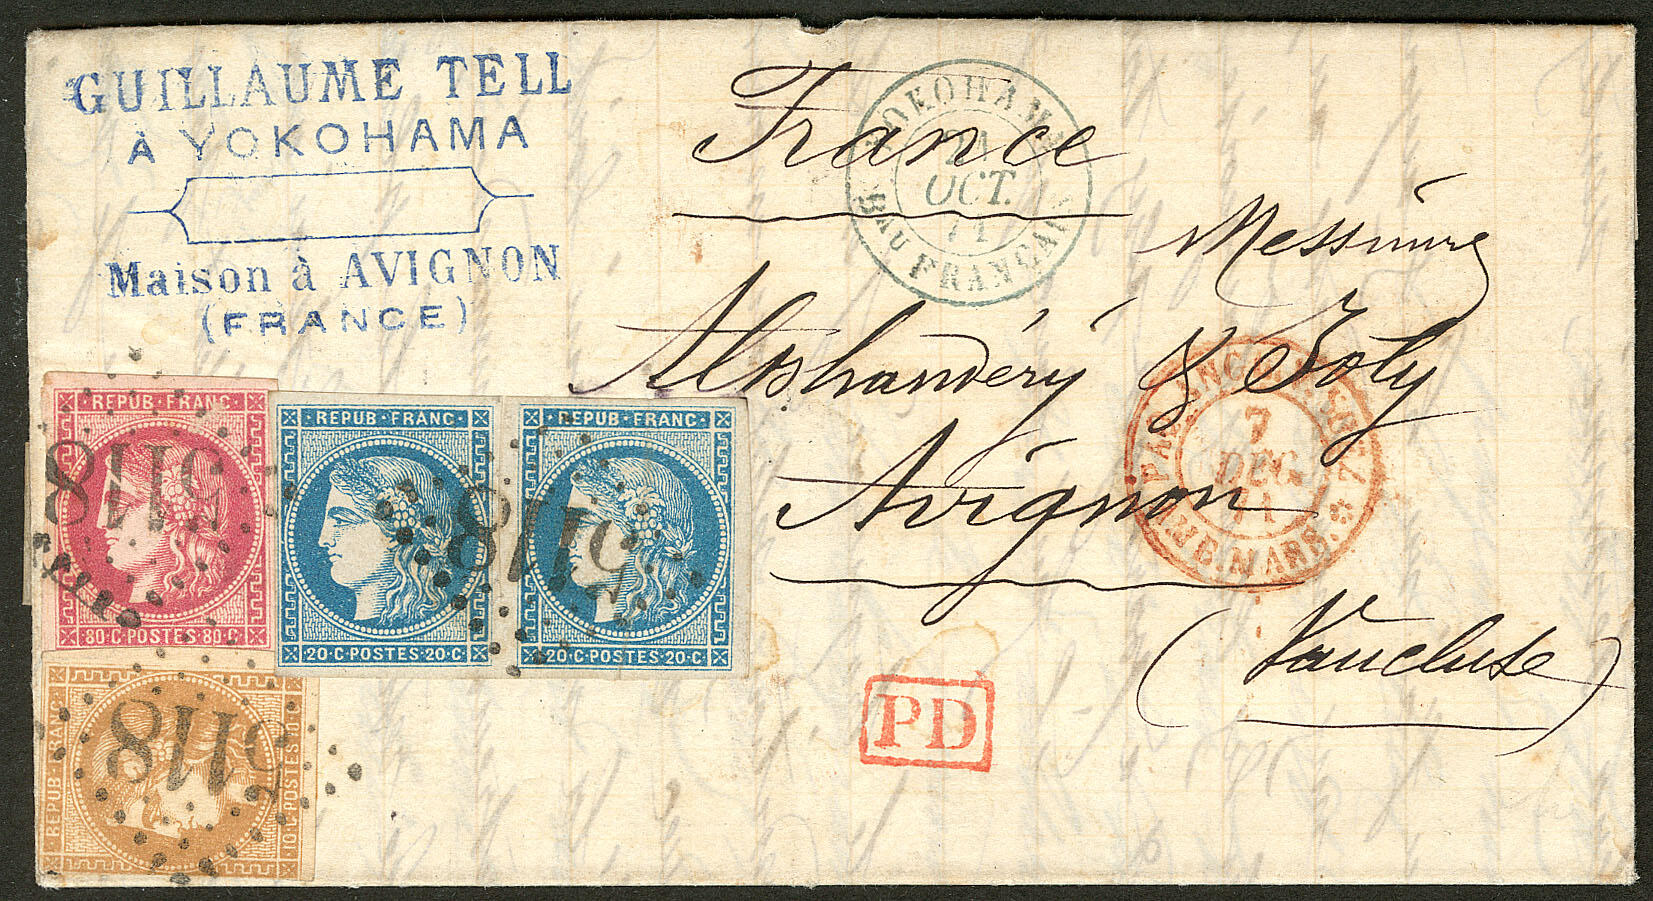 GUILLAUME TELL
À YOKOHAMA
Maison à AVIGNON
(FRANCE)
France
YOKOHAMA
OCT.
71
BAU FRANÇAIS
Messieurs
Alphandéry & Joly
Avignon
(Vaucluse)
7
DEC
71
MARS.
PD
REPUB·FRANC·
80·C·POSTES·80·C·
5118
REPUB·FRANC·
20·C·POSTES·20·C·
REPUB·FRANC·
20·C·POSTES·20·C·
5118
REPUB·FRANC·
10·C·POSTES·10·C·
5118